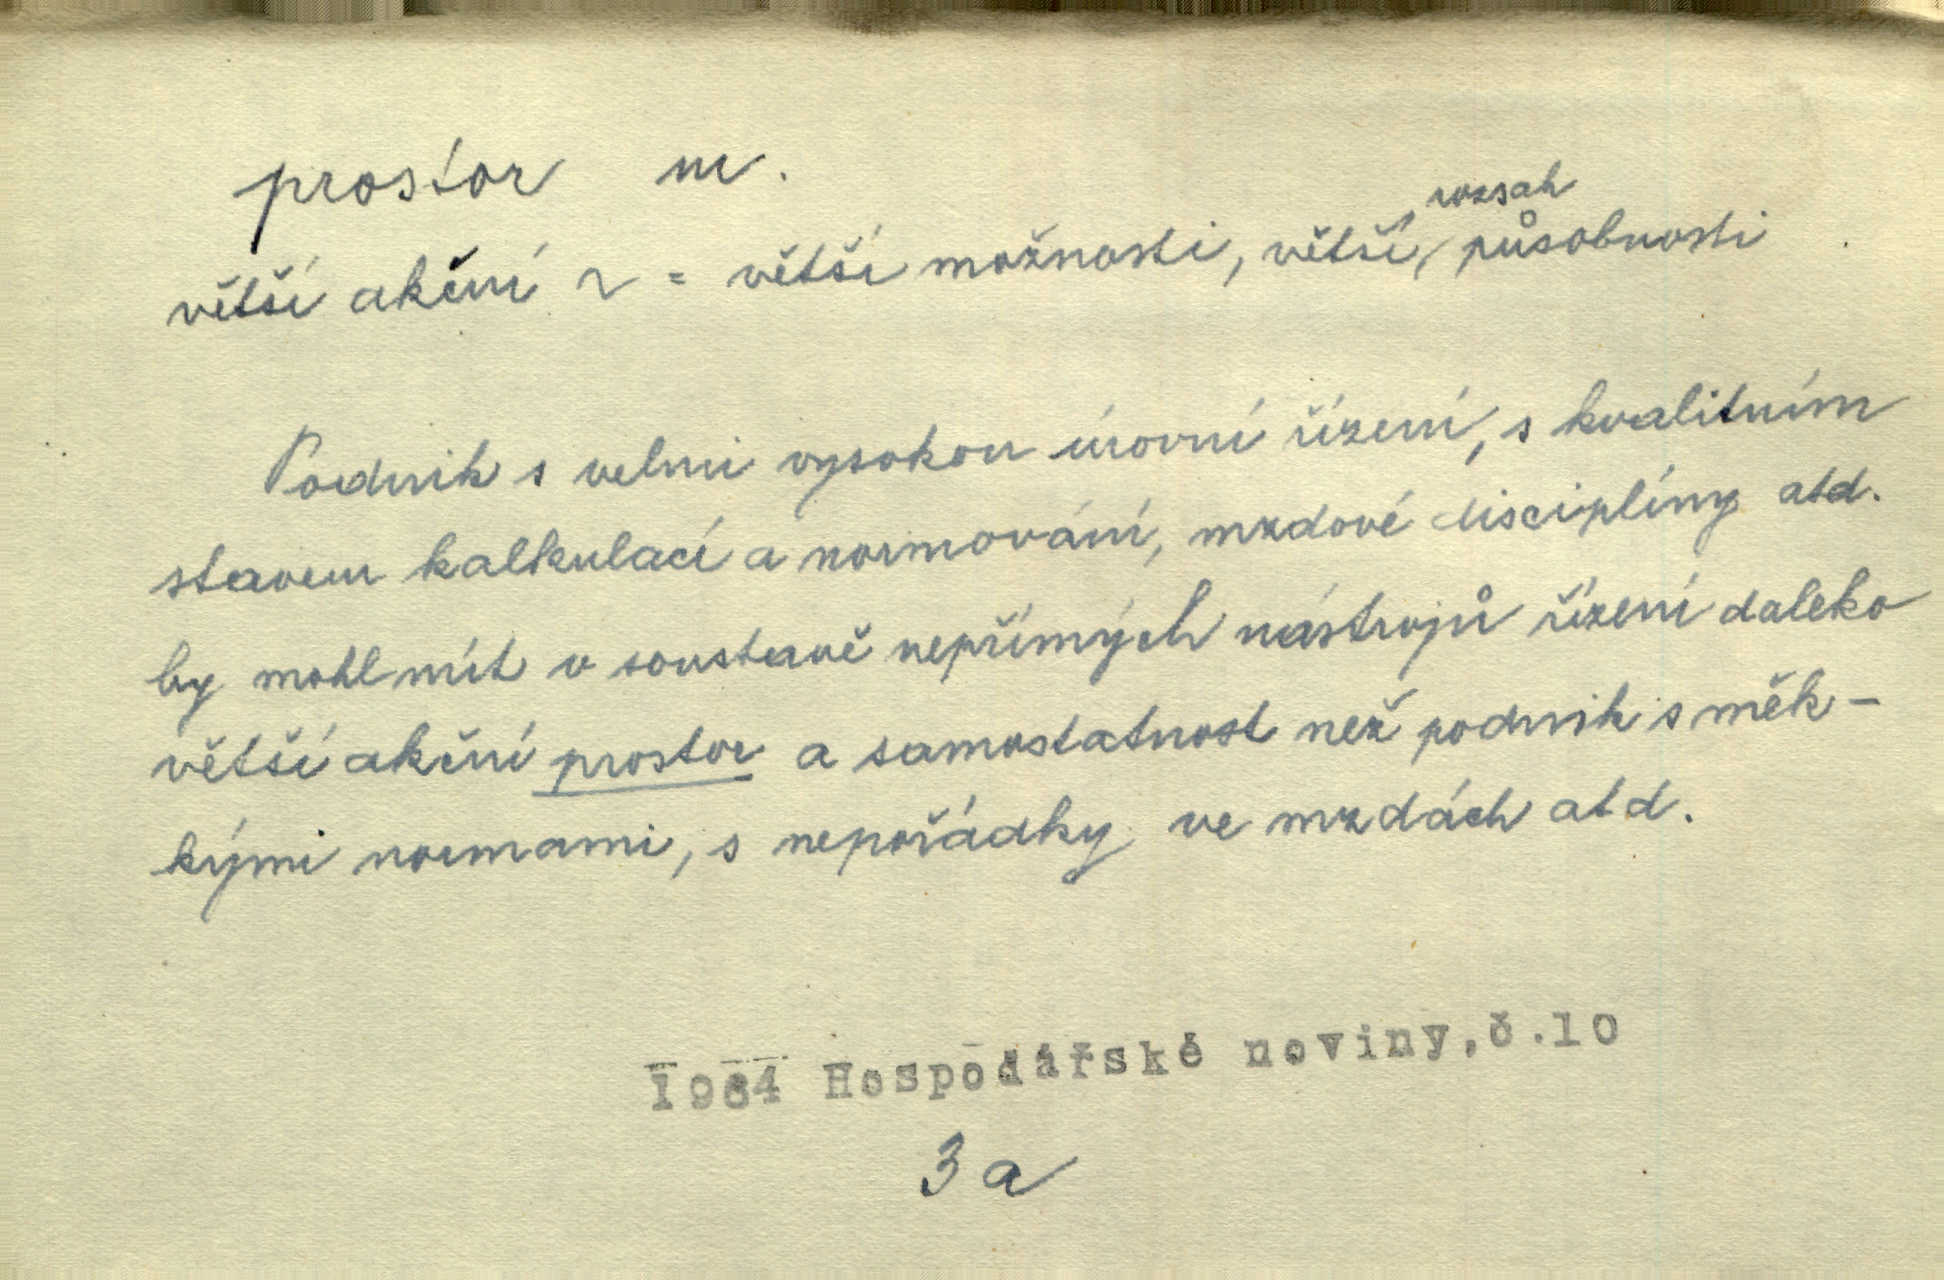 prostor m.
větší akční ~ = větší možnosti, větší rozsah působnosti
Podnik s velmi vysokou úrovní řízení, s kvalitním
stavem kalkulací a normování, mzdové disciplíny atd.
by mohl mít v soustavě nepřímých nástrojů řízení daleko
větší akční prostor a samostatnost než podnik s měk-
kými normami, s nepořádky ve mzdách atd.
1964 Hospodářské noviny, č.10
3a